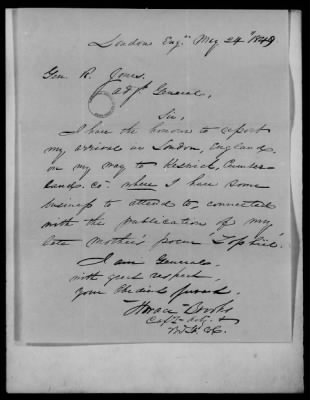 London Eng.d May 24th 1849
Gen. R. Jones.
Adjt General,
Sir,
I have the honour to report
my arrival in London, England.
on my way to Keswick, Cumber-
land. Co. where I have some
business to attend to, connected
with the publication of my
late mother's poem Zophiel.
I am General
with great respect
your Obedient
Horace Brooks